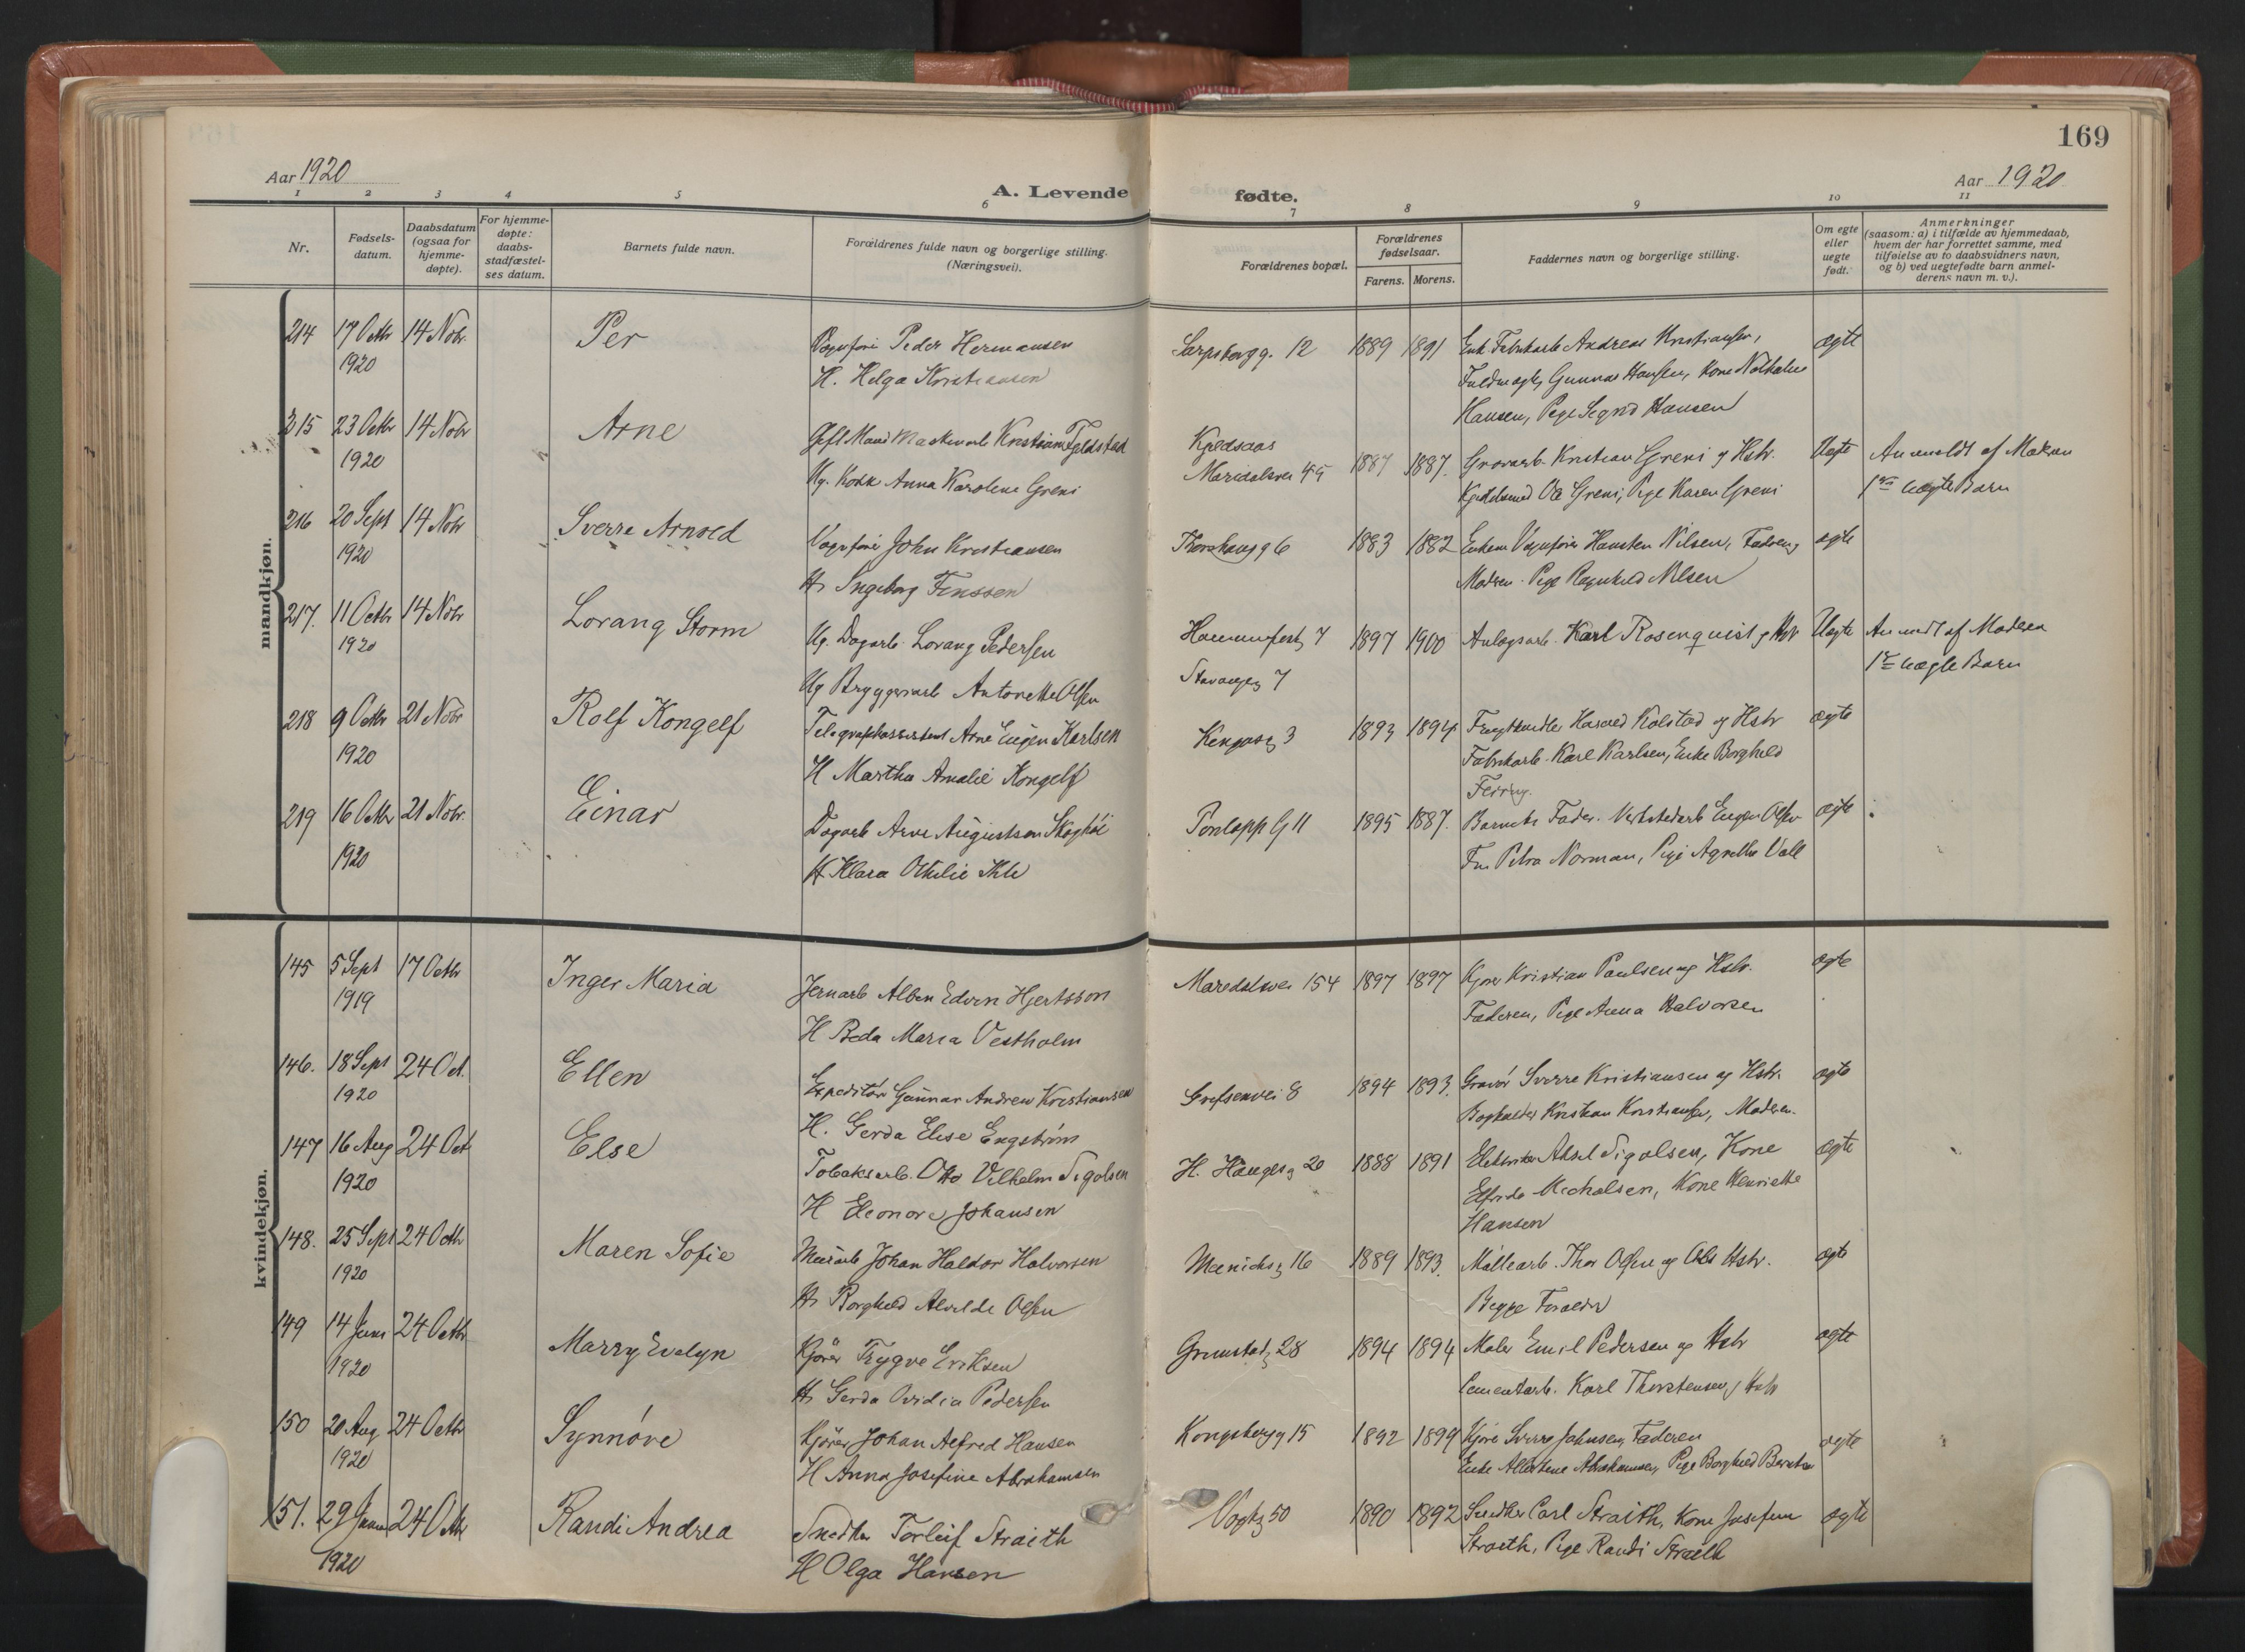 169
Aar 1920
A. Levende fødte.
Aar 1920
1 2 3 4 5 6 7 8 9 10 11
Nr.
Fødsels-
datum.
Daabsdatum
(ogsaa for
hjemme-
døpte).
For hjemme-
døpte:
daabs-
stadfæstel-
ses datum.
Barnets fulde navn.
Forældrenes fulde navn og borgerlige stilling.
(Næringsvei).
Forældrenes bopæl.
Forældrenes
fødselsaar.
Farens. Morens.
Faddernes navn og borgerlige stilling.
Om egte
eller
uegte
født.
Anmerkninger
(saasom: a) i tilfælde av hjemmedaab,
hvem der har forrettet samme, med
tilføielse av to daabsvidners navn,
og b) ved uegtefødte barn anmel-
derens navn m. v.).
mandkjøn.
214 17 Octbr 14 Nobr. Per Vognfører Peder Hermansen Sarpsborgg. 12 1889 1891 Enk. Fabrikarb Andreas Kristiansen, ægte
1920 H. Helga Kristiansen Gunnar Hansen, Kone Nathalie
Hansen, Pige Sigrid Hansen
215 23 Octbr 14 Nobr Arne Gift Mand Kristian Fjeldstad Kjelsaas 1887 1887. Kristian Greni og Hstr. Uegte Anmeldt af Moderen
1920 Ug. Kokk Anna Karoline Greni Maridalsvei Greni, Pige Karen Greni 1ste uægte Barn
216 20 Sept 14 Nobr Sverre Arnold Vognfører John Kristiansen Thorshaugg 6 1883 1882 Vognfører Nilsen, Faderen og ægte
1920 H. Ingeborg Finssen Moderen. Pige Ragnhild Nilsen
217. 11 Octbr 14 Nobr Lorang Storm Ug. Dagarb. Lorang Pedersen Hammerfestg 7 1897 1900 Anlægsarb. Karl Rosenquist og Hstr Uegte Anmeldt af Moderen
1920 Ug Bryggeriarb Antonette Olsen Stavangerg 7 1ste uægte Barn
218 9 Octbr 21 Nobr Rolf Kongelf Telegrafassistent Arne Eugen Karlsen 3 1893 1894 Frugthandler Harald Kolstad og Hstr ægte
1920 H Martha Amalie Kongelf Fabrikarb. Karl Karlsen, Enke Borghild
219 16 Octbr 21 Nobr. Einar Dagarb Arne Augustson Skoghøi 11 1895 1887. Barnets Fader. Verkstedarb Eugen Olsen ægte
1920 H Klara Othilie Fru Petra Norman, Pige Agnethe Vall
kvindekjøn.
145 5 Sept 17 Octbr Inger Maria Jernarb Albin Edvin Hjertsson Maredalsvei 154 1897 1897 Kjører Kristian Paulsen og Hstr. ægte
1919 H Beda Maria Vestholm Faderen, Pige Anna Halvorsen
146. 18 Sept 24 Oct. Ellen Expeditør Gunnar Andrew Kristiansen Grefsenvei 8 1894 1893. Gravør Sverre Kristiansen og Hstr. ægte
1920 H. Gerda Elise Engstrøm Bogholder Kristian Kristiansen, Moderen.
147 16 Aug 24 Oct Else Tobaksarb. Otto Vilhelm Sigolsen H. Haugesg 20 1888 1891 Elektriker Aksel Sigolsen, Kone ægte
1920 H Eleonore Johansen Elfrida Micholsen, Kone Henriette
Hansen
148. 25 Sept 24 Octbr Maren Sofie Murarb Johan Haldor Halvorsen 16 1889 1893. Møllearb. Thor Olsen og Hstr. ægte
1920 H. Borghild Alvilde Olsen Begge Forældre
149 14 Juni 24 Octbr Marry Evelyn Kjører Trygve Eriksen Grimstadg 28 1894 1894 Maler Emil Pedersen og Hstr ægte
1920 H. Gerda Ovidia Pedersen Cementarb. Karl Thorstensen og Hstr
150 20 Aug 24 Octbr Synnøve Kjører Johan Alfred Hansen Kongsbergg 15 1892 1899 Kjører Sverre Johnsen, Faderen ægte
1920 H Anna Josefine Abrahamsen Enke Abrahamsen, Pige Borghild
151. 29 24 Octbr Randi Andrea Snedker Torleif Straith Vogtsg 50 1890 1892 Snedker Carl Straith, Kone Josefine ægte
1920 H Olga Hansen Straith, Pige Randi Straith